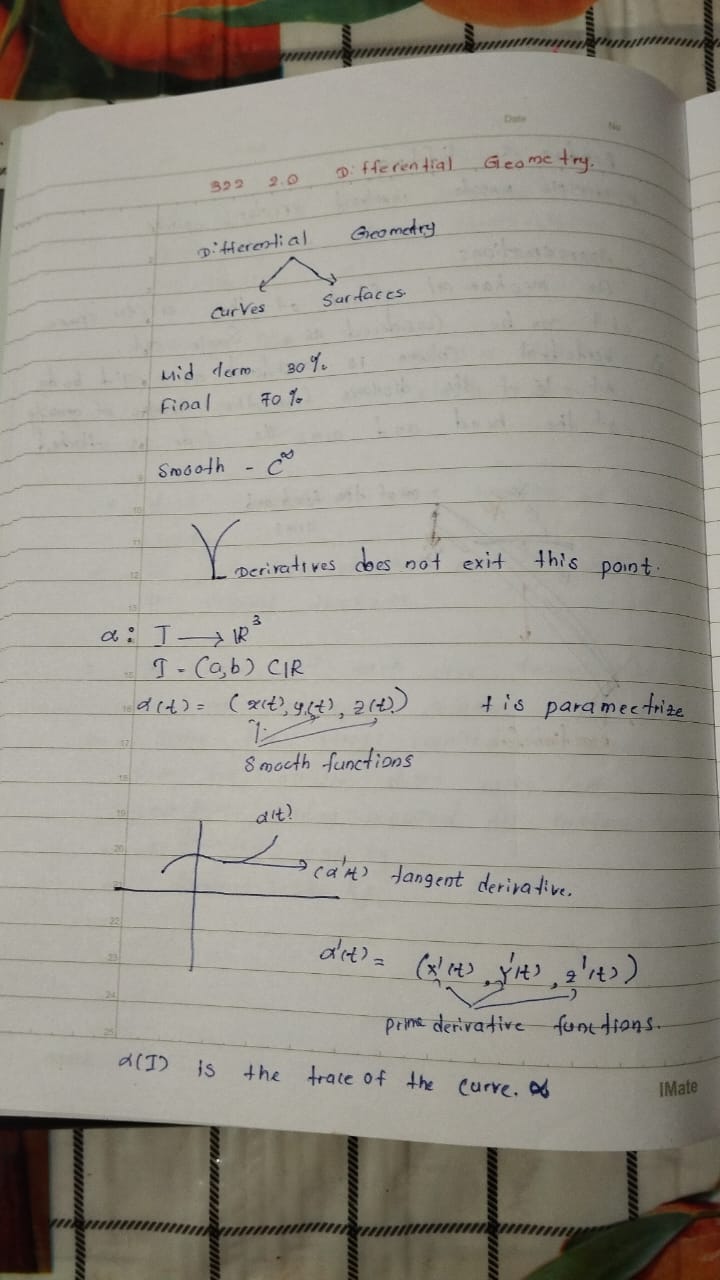 Date No
322 2.0 Differential Geometry.
Differential Geometry
Curves Surfaces.
Mid term 30%
Final 70%
Smooth - C^∞
Derivatives does not exit this point.
α : I → ℝ^3
I = (a,b) ⊂ ℝ
α(t) = (x(t), y(t), z(t)) t is paramectrize
Smooth functions
α(t)
(α'(t)) tangent derivative.
α'(t) = (x'(t), y'(t), z'(t))
prime derivative functions.
α(I) is the trace of the curve. α
IMate